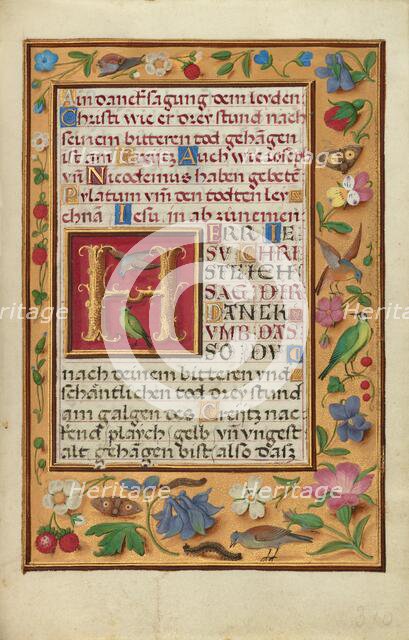 Ain dancksagung dem leyden
Christi wie er drey stund nach
seinem bitteren tod gehangen
ist am Creütz Auch wie ioseph
vn̄ Nicodemus haben gebetē
Pylatum vm̄ den todten ley
chnā Iesu, in ab zunemen
HERR IE
SV CHRI
STE ICH
SAG DIR
DANCK
VMB DAS
SO DV
nach deinem bitteren vnd
schäntlichen tod drey stund
am galgen des Creütz nac
kend playch gelb vn̄ vngest
alt gehangen bist also dasz
Heritage
Heritage
Heritage
Heritage
Heritage
Heritage